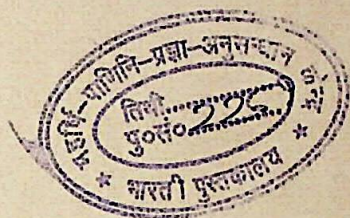 महर्षि-पाणिनि-प्रज्ञा-अनुसन्धान केन्द्र
तिथी..................
पु०सं० 225
* भारती पुस्तकालय *